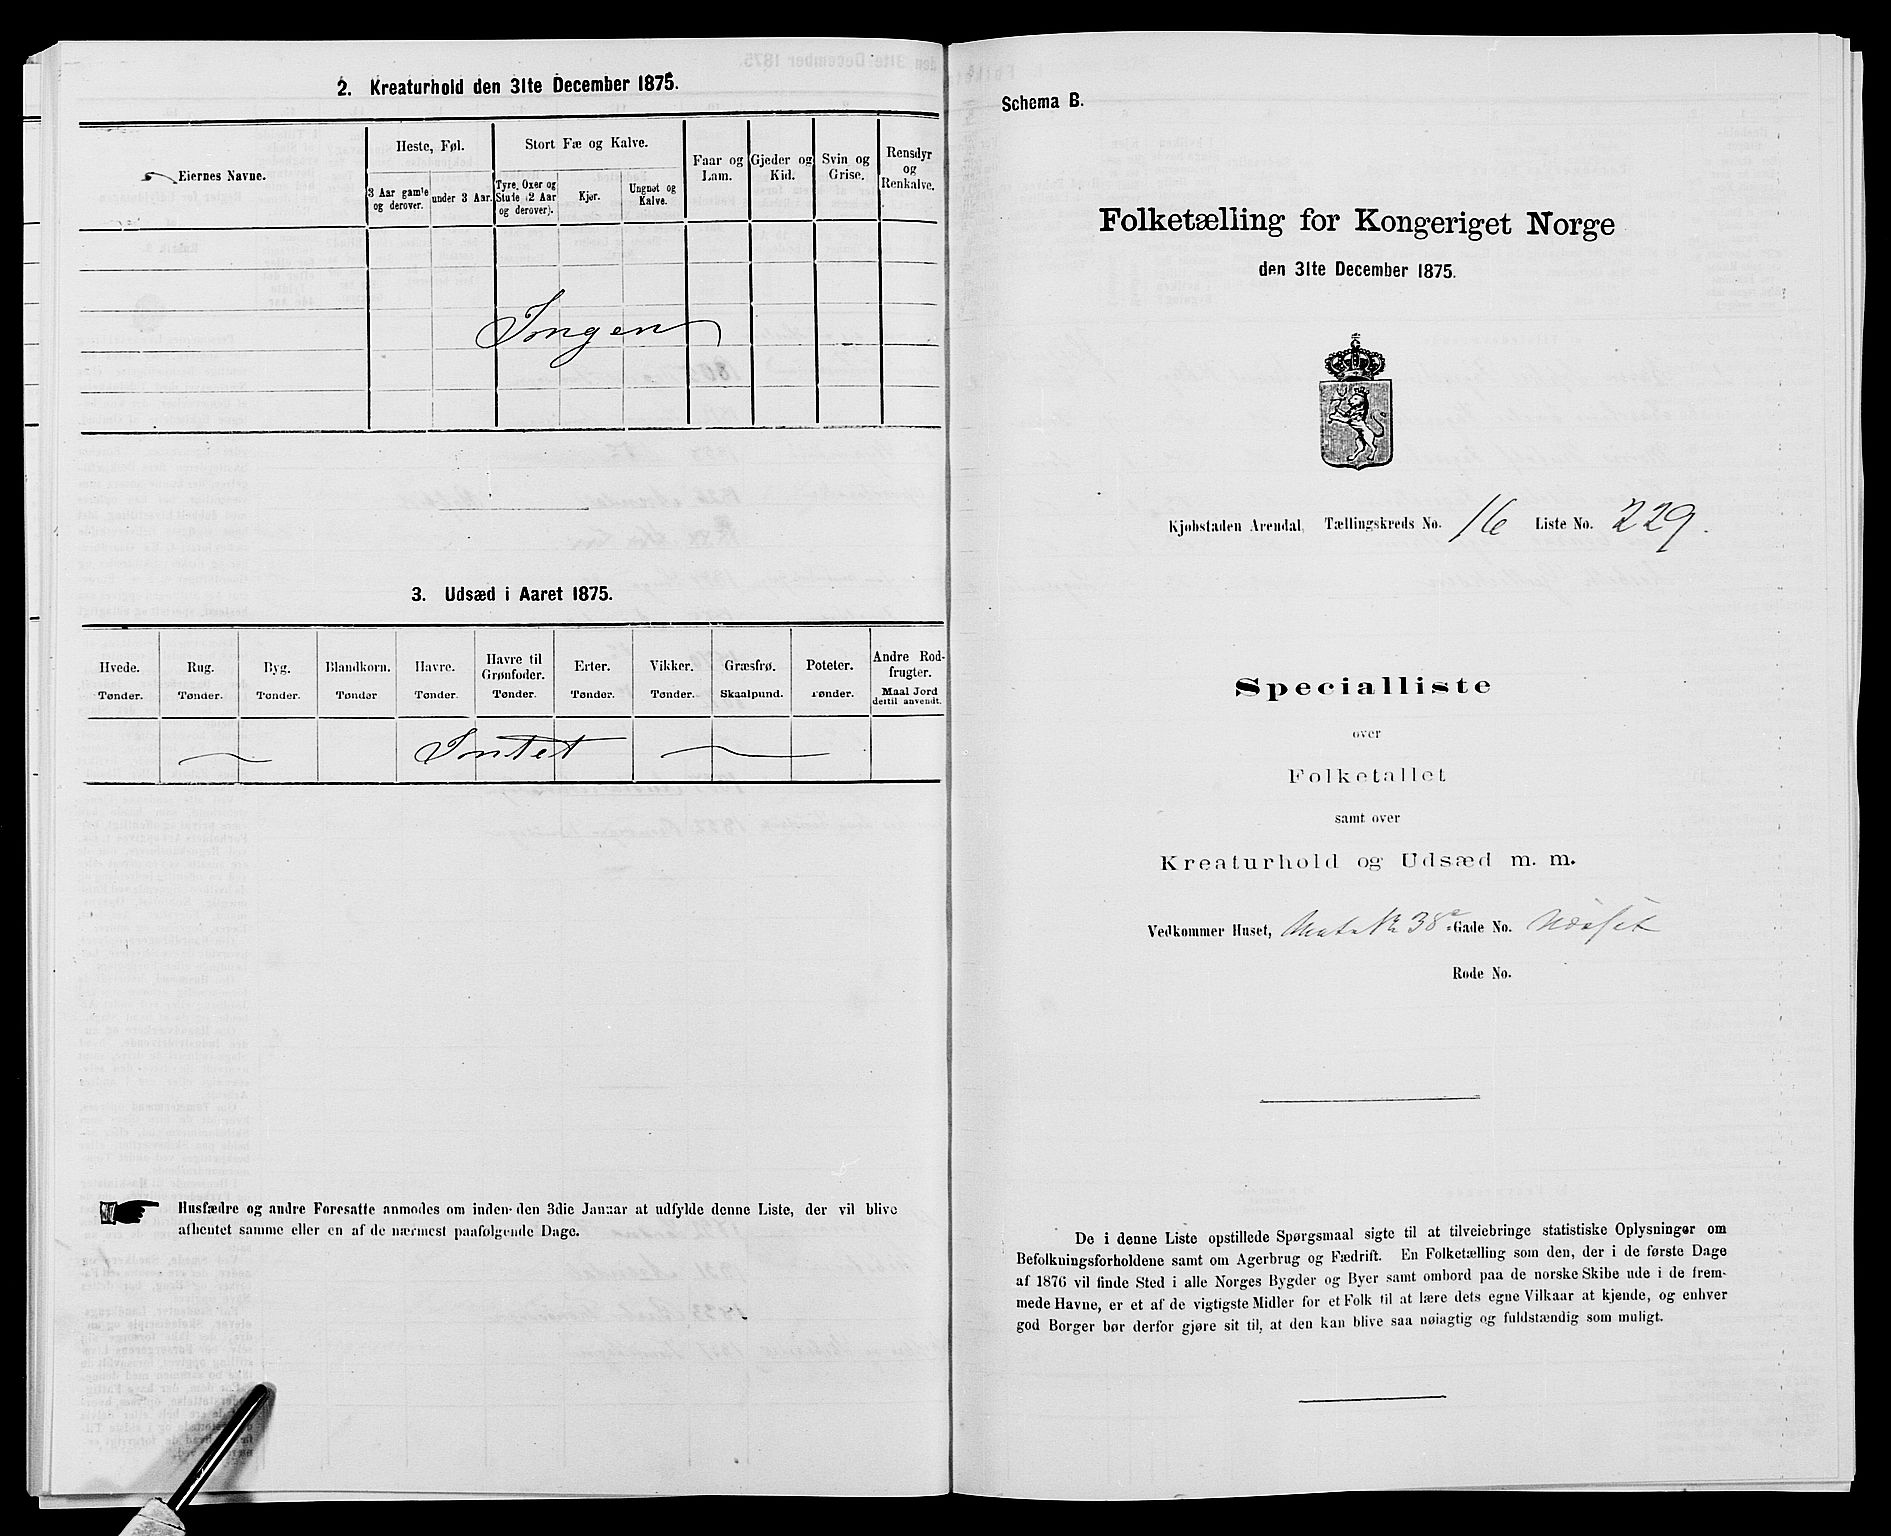 2. Kreaturhold den 31te December 1875.
Eiernes Navne.
Heste, Føl.
3 Aar gamle og derover.
under 3 Aar.
Stort Fæ og Kalve.
Tyre, Oxer og Stude (2 Aar og derover).
Kjør.
Ungnøt og Kalve.
Faar og Lam.
Gjeder og Kid.
Svin og Grise.
Rensdyr og Renkalve.
Ingen
3. Udsæd i Aaret 1875.
Hvede. Rug. Byg. Blandkorn. Havre. Havre til Grønfoder. Erter. Vikker. Græsfrø. Poteter. Andre Rodfrugter.
Tønder. Tønder. Tønder. Tønder Tønder. Tønder. Tønder. Tønder. Skaalpund. Tønder. Maal Jord dertil anvendt.
Intet
Husfædre og andre Foresatte anmodes om inden den 3die Januar at udfylde denne Liste, der vil blive
afhentet samme eller en af de nærmest paafølgende Dage.
Schema B.
Folketælling for Kongeriget Norge
den 31te December 1875.
Kjøbstaden Arendal, Tællingskreds No. 16 Liste No. 229.
Specialliste
over
Folketallet
samt over
Kreaturhold og Udsæd m. m.
Vedkommer Huset, 38 Gade No.
Rode No.
De i denne Liste opstillede Spørgsmaal sigte til at tilveiebringe statistiske Oplysninger om
Befolkningsforholdene samt om Agerbrug og Fædrift. En Folketælling som den, der i de første Dage
af 1876 vil finde Sted i alle Norges Bygder og Byer samt ombord paa de norske Skibe ude i de frem-
mede Havne, er et af de vigtigste Midler for et Folk til at lære dets egne Vilkaar at kjende, og enhver
god Borger bør derfor gjøre sit til, at den kan blive saa nøiagtig og fuldstændig som muligt.